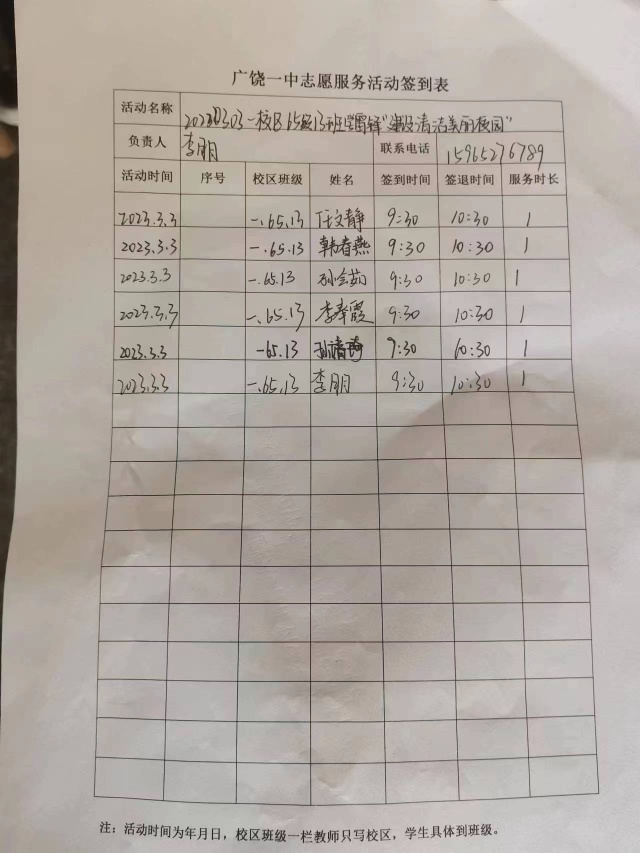 广饶一中志愿服务活动签到表
活动名称 一校区65级13班学雷锋"建设清洁美丽校园"
负责人 李朋 联系电话 15965276789
活动时间 序号 校区班级 姓名 签到时间 签退时间 服务时长
2023.3.3 一.65.13 任文静 9:30 10:30 1
2023.3.3 一.65.13 韩春燕 9:30 10:30 1
2023.3.3 一.65.13 孙会茹 9:30 10:30 1
2023.3.3 一.65.13 李奉霞 9:30 10:30 1
2023.3.3 一65.13 孙清 9:30 10:30 1
2023.3.3 一.65.13 李朋 9:30 10:30 1
注：活动时间为年月日，校区班级一栏教师只写校区，学生具体到班级。